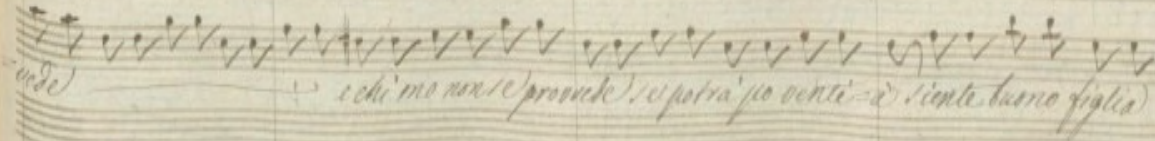 vede e chi mo non se provvede se potrà po venti=à siente buono figlia